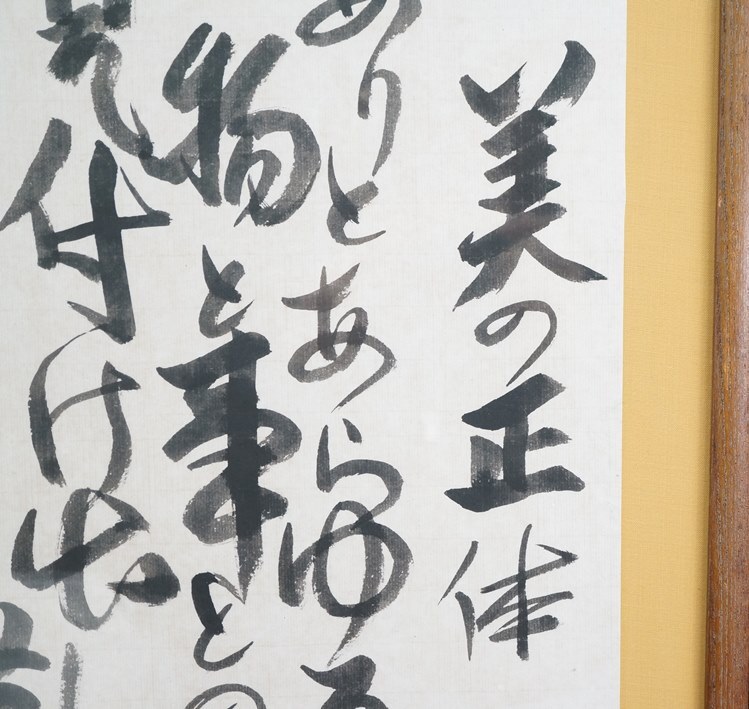 美の正体
ありとあらゆ
物と事との
見付け出